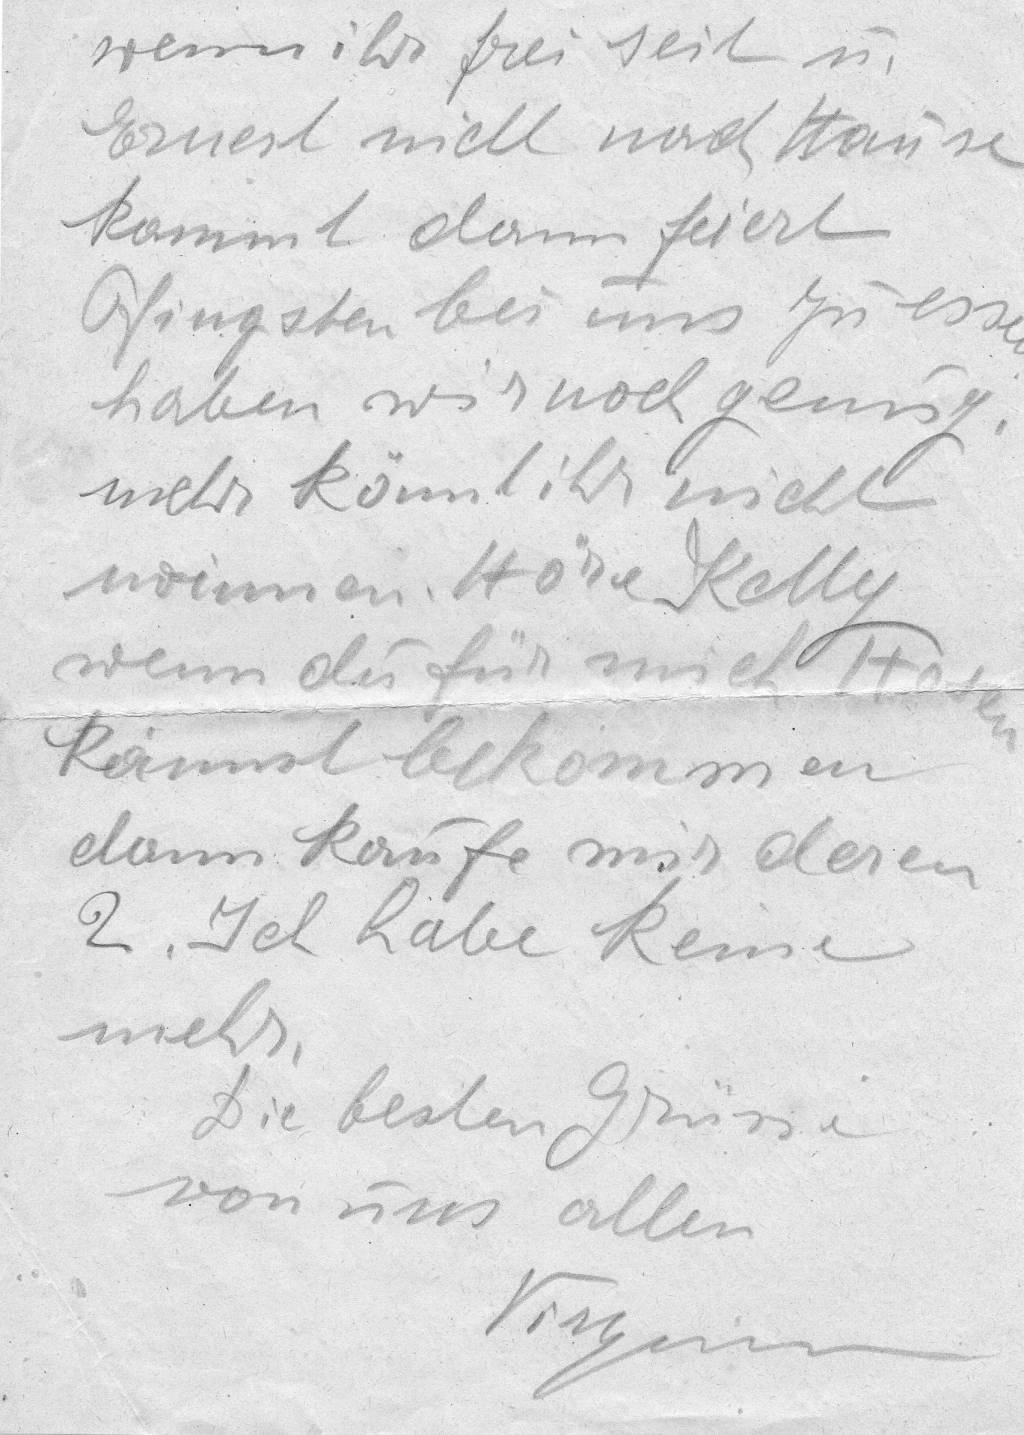 wenn ihr frei seit u.
Ernest nicht nach Hause
kommt dann feiert
Pfingsten bei uns zu essen
haben wir noch genug.
mehr könnt ihr nicht
Höre Kelly
wenn du für mich Hosen
kannst bekommen
dann kaufe mir deren
2. Ich habe keine
mehr.
Die besten Grüsse
von uns allen